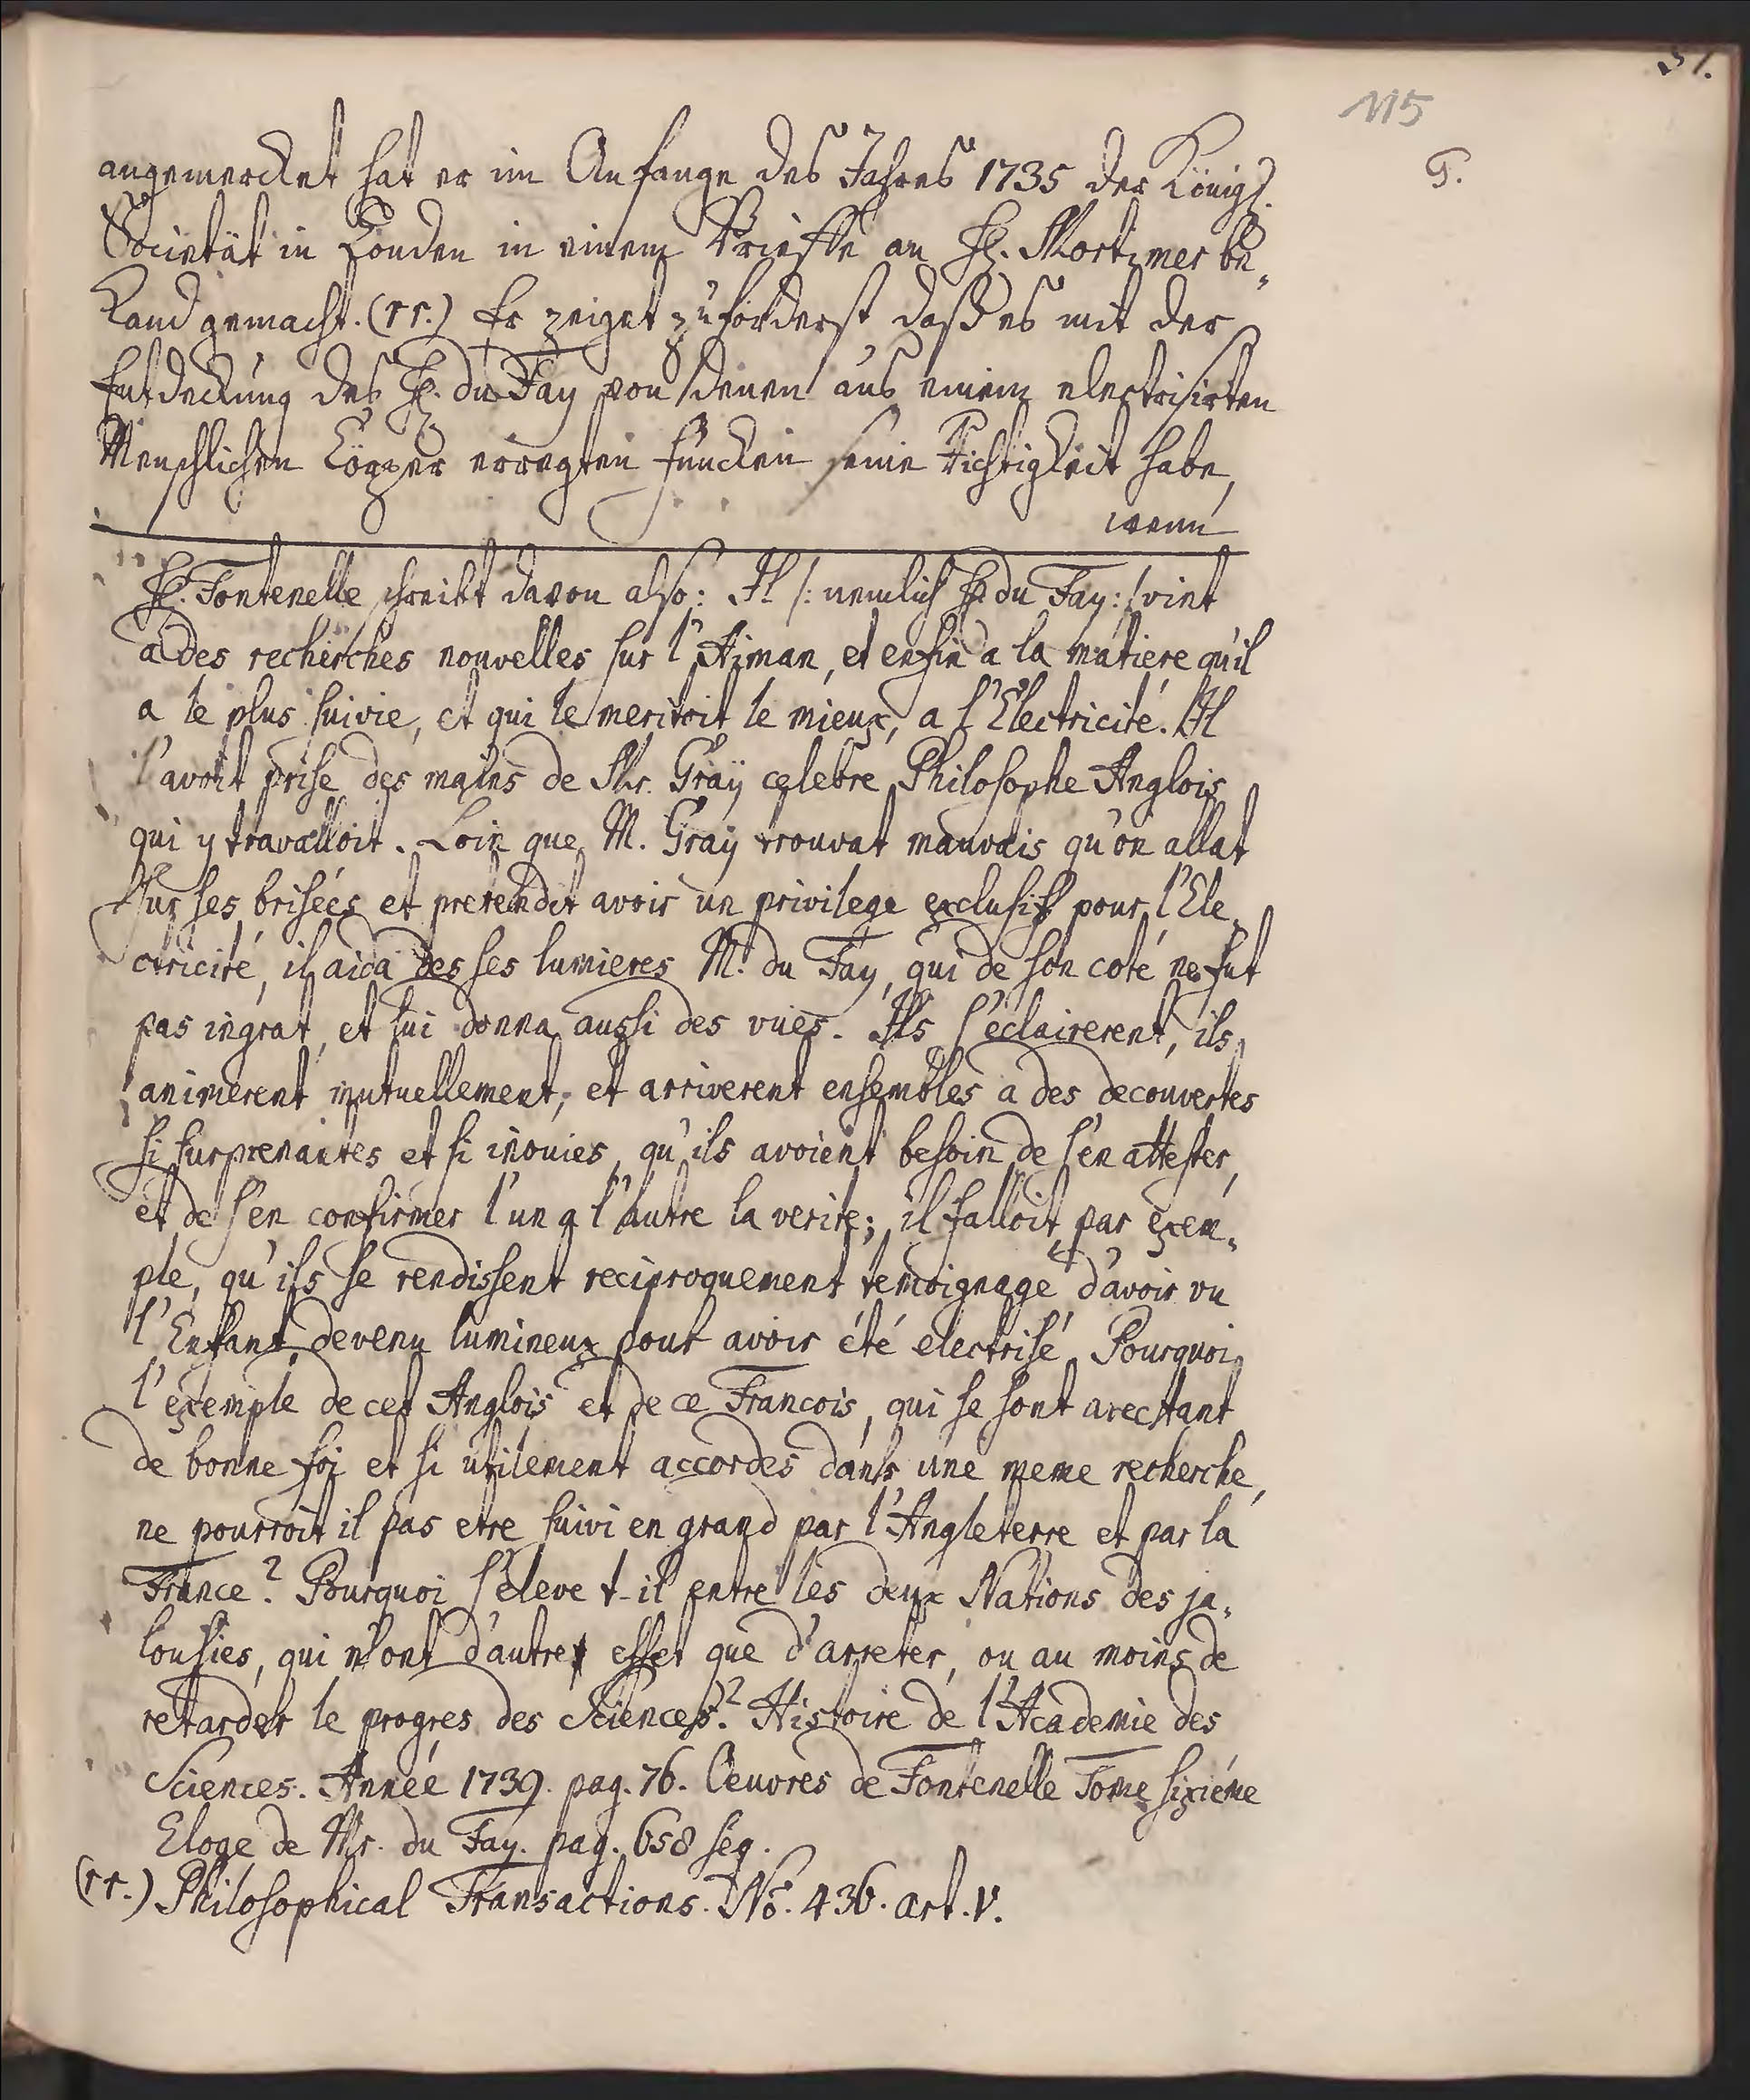 115
angemercket hat er im Anfange des Jahres 1735 der Königl.
Societät in Londen in einem Brieffe an H. Mortimer be-
kand gemacht. (rr.) Er zeiget zuforderst daß es mit der
Entdeckung des H. du Fay von denen aus einem electrisirten
Menschlichen Cörper erregten Funcken seine Richtigkeit habe,
wenn
H. Fontenelle schreibt davon also: Il /: nemlich H. du Fay :/ vint
a des recherches nouvelles sur l'Aiman, et enfin a la matiere qu'il
a le plus suivie, et qui le meritoit le mieux, a l'Electricité. Il
l'avoit prise des mains de Mr. Graÿ celebre Philosophe Anglois
qui y travailloit. Loin que M. Graÿ trouvat mauvais qu'on allat
sur ses brisées et pretendit avoir un privilege exclusif pour l'Ele-
ctricité, il aida des ses lumieres M. du Fay, qui de son coté ne fut
pas ingrat, et lui donna aussi des vues. Ils s'éclairerent, ils
animerent mutuellement, et arriverent ensembles a des decouvertes
si surprenantes et si inouies, qu'ils avoient besoin de s'en attester,
et de s'en confirmer l'un a l'autre la verite; il falloit par exem-
ple, qu'ils se rendissent reciproquement temoignage d'avoir vu
l'Enfant devenu lumineux pour avoir été electrisé. Pourquoi
l'exemple de cet Anglois et de ce Francois, qui se sont avec tant
de bonne foi et si utilement accordes dans une meme recherche,
ne pourroit il pas etre suivi en grand par l'Angleterre et par la
France? Pourquoi s'eleve t-il entre les deux Nations des ja-
lousies, qui n'ont d'autre effet que d'arreter, ou au moins de
retarder le progres des Sciences? Histoire de l'Academie des
Sciences. Année 1739. pag. 76. Oeuvres de Fontenelle Tome sixiéme
Eloge de Mr. du Fay. pag. 658 seq.
(rr.) Philosophical Transactions. No. 436. art. V.